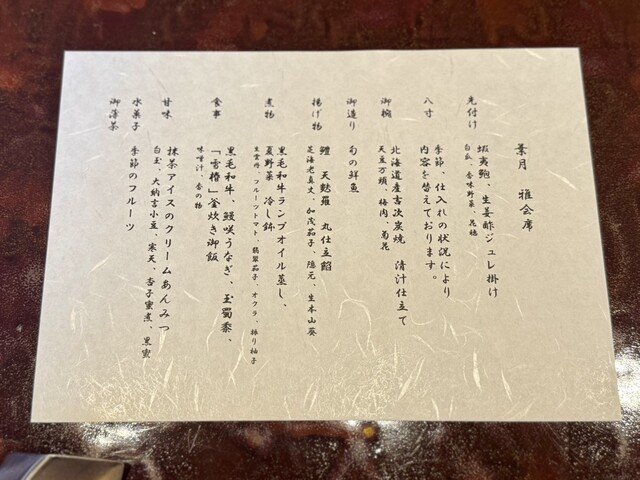 葉月　雅会席
先付け
蝦夷鮑、生姜酢ジュレ掛け
白瓜、香味野菜、花穂
八寸
季節、仕入れの状況により
内容を替えております。
御椀
北海道産吉次炭焼　清汁仕立て
天豆万頭、梅肉、菊花
御造り
旬の鮮魚
揚げ物
鱧　天麩羅　丸仕立餡
芝海老真丈、加茂茄子、隠元、生本山葵
煮物
黒毛和牛ランプオイル蒸し、
夏野菜　冷し鉢
生雲丹、フルーツトマト、翡翠茄子、オクラ、振り柚子
食事
黒毛和牛、鰻咲うなぎ、玉蜀黍、
「雪椿」釜炊き御飯
味噌汁、香の物
甘味
抹茶アイスのクリームあんみつ
白玉、大納言小豆、寒天、杏子蜜煮、黒蜜
水菓子
季節のフルーツ
御薄茶